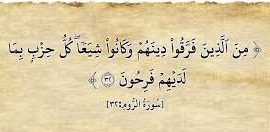 ﴿ مِنَ ٱلَّذِينَ فَرَّقُوا۟ دِينَهُمْ وَكَانُوا۟ شِيَعًا ۖ كُلُّ حِزْبٍۭ بِمَا
لَدَيْهِمْ فَرِحُونَ ٣٢ ﴾
[سُورَةُ الرُّومِ:٣٢]